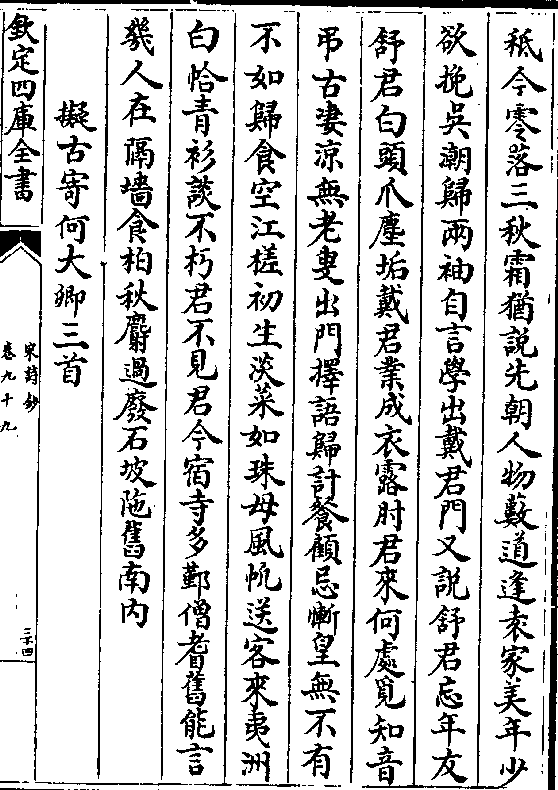 秪今零落三秋霜猶說先朝人物藪道逢袁家美年少
欲挽吳潮歸兩袖自言學出戴君門又說舒君忘年友
舒君白頭爪塵垢戴君業成衣露肘君來何處覓知音
弔古凄涼無老叟出門擇語歸計餐顧忌慚皇無不有
不如歸食空江槎初生淡菜如珠母風帆送客來夷洲
白恰青衫談不朽君不見君今宿寺多鄞僧耆舊能言
幾人在隔墻食柏秋麝過廢石坡陁舊南内
擬古寄何大卿三首
欽定四庫全書
宋詩鈔
卷九十九